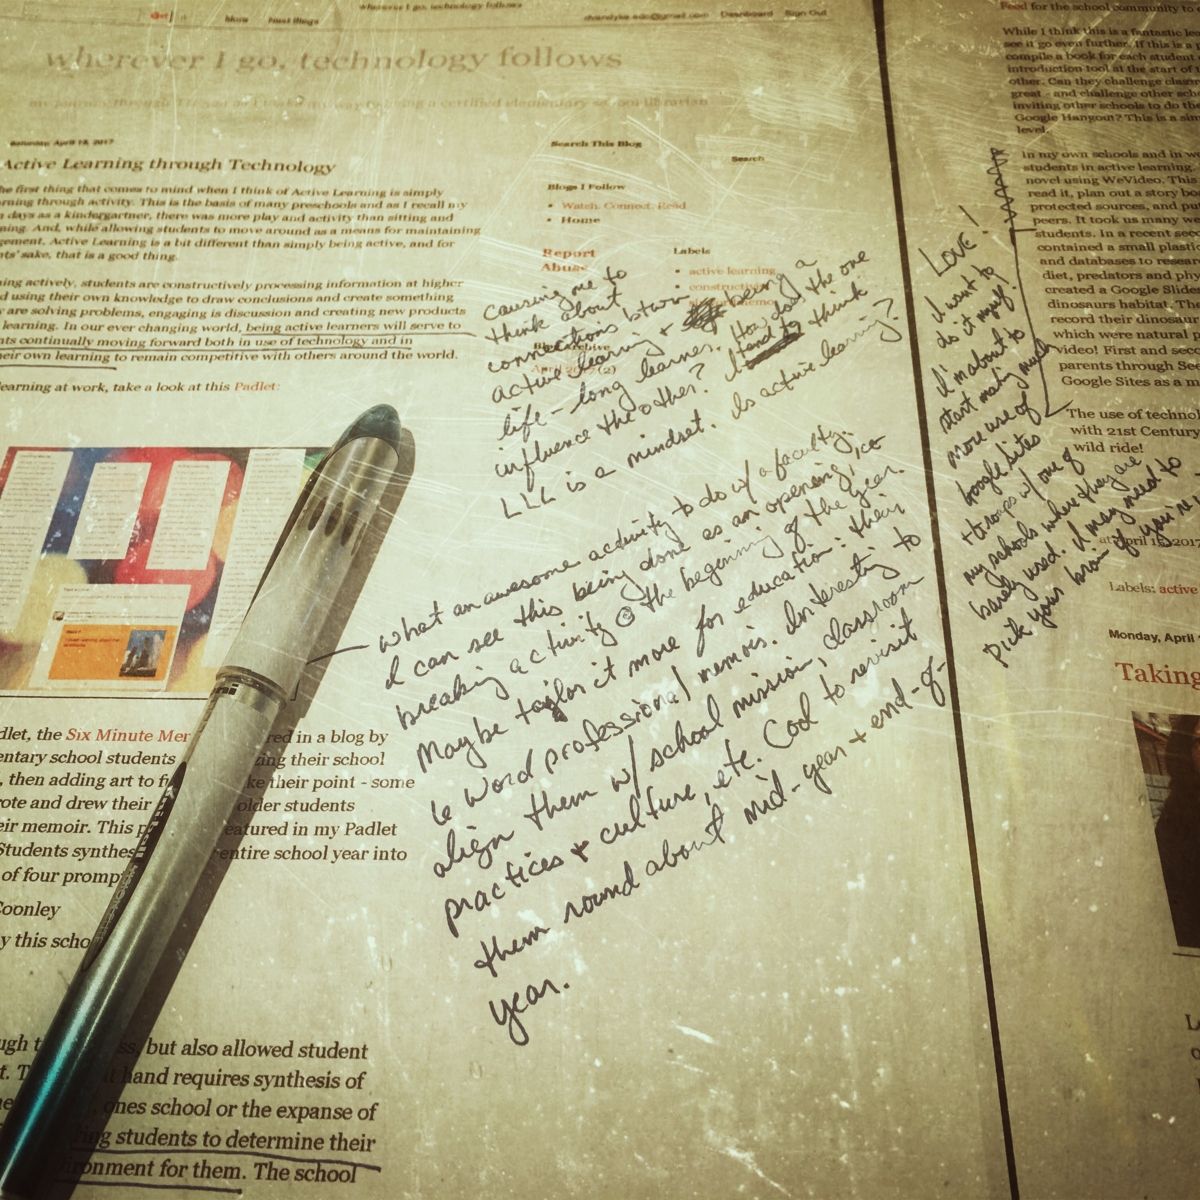 wherever I go, technology follows
Dashboard Sign Out
wherever I go, technology follows
Saturday, April 15, 2017
Active Learning through Technology
he first thing that comes to mind when I think of Active Learning is simply
rning through activity. This is the basis of many preschools and as I recall my
n days as a kindergartner, there was more play and activity than sitting and
ning. And, while allowing students to move around as a means for maintaining
gement, Active Learning is a bit different than simply being active, and for
nts' sake, that is a good thing.
ning actively, students are constructively processing information at higher
d using their own knowledge to draw conclusions and create something
y are solving problems, engaging is discussion and creating new products
learning. In our ever changing world, being active learners will serve to
nts continually moving forward both in use of technology and in
heir own learning to remain competitive with others around the world.
learning at work, take a look at this Padlet:
dlet, the Six Minute Mer red in a blog by
entary school students zing their school
, then adding art to fu ke their point - some
rote and drew their older students
eir memoir. This p eatured in my Padlet
Students synthes entire school year into
of four promp
Coonley
y this scho
ugh t ss, but also allowed student
t. T t hand requires synthesis of
ones school or the expanse of
ing students to determine their
ironment for them. The school
Search This Blog
Search
Blogs I Follow
Watch. Connect. Read
Home
Report
Abuse
Labels
active learning
causing me to
think about
connections btwn
active learning + being a
life-long learner. How does the one
influence the other? I tend to think
LLL is a mindset. Is active learning?
What an awesome activity to do w/ a faculty.
I can see this being done as an opening, ice
breaking activity @ the beginning of the year.
Maybe taylor it more for education: their
6 word professional memoir. Interesting to
align them w/ school mission, classroom
practices + culture, etc. Cool to revisit
them round about mid-year + end-of-
year.
LOVE!
I want to
do it myself!
I'm about to
start making much
more use of
Google Sites
+ troops w/ one of
my schools where they are
barely used. I may need to
pick your brain if you're
Feed for the school community to
While I think this is a fantastic
see it go even further. If this is a
compile a book for each student
introduction tool at the start of
other. Can they challenge
great - and challenge other
inviting other schools to do the
Google Hangout? This is a
level.
In my own schools and in
students in active learning.
novel using WeVideo. This
read it, plan out a story
protected sources, and put
peers. It took us many
students. In a recent
contained a small plastic
and databases to
diet, predators and
created a Google Slides
dinosaurs habitat.
record their
which were natural
Video! First and
parents through
Google Sites as a
The use of
with 21st Century
wild ride!
at April 15, 2017
Labels: active
Monday, April
Taking